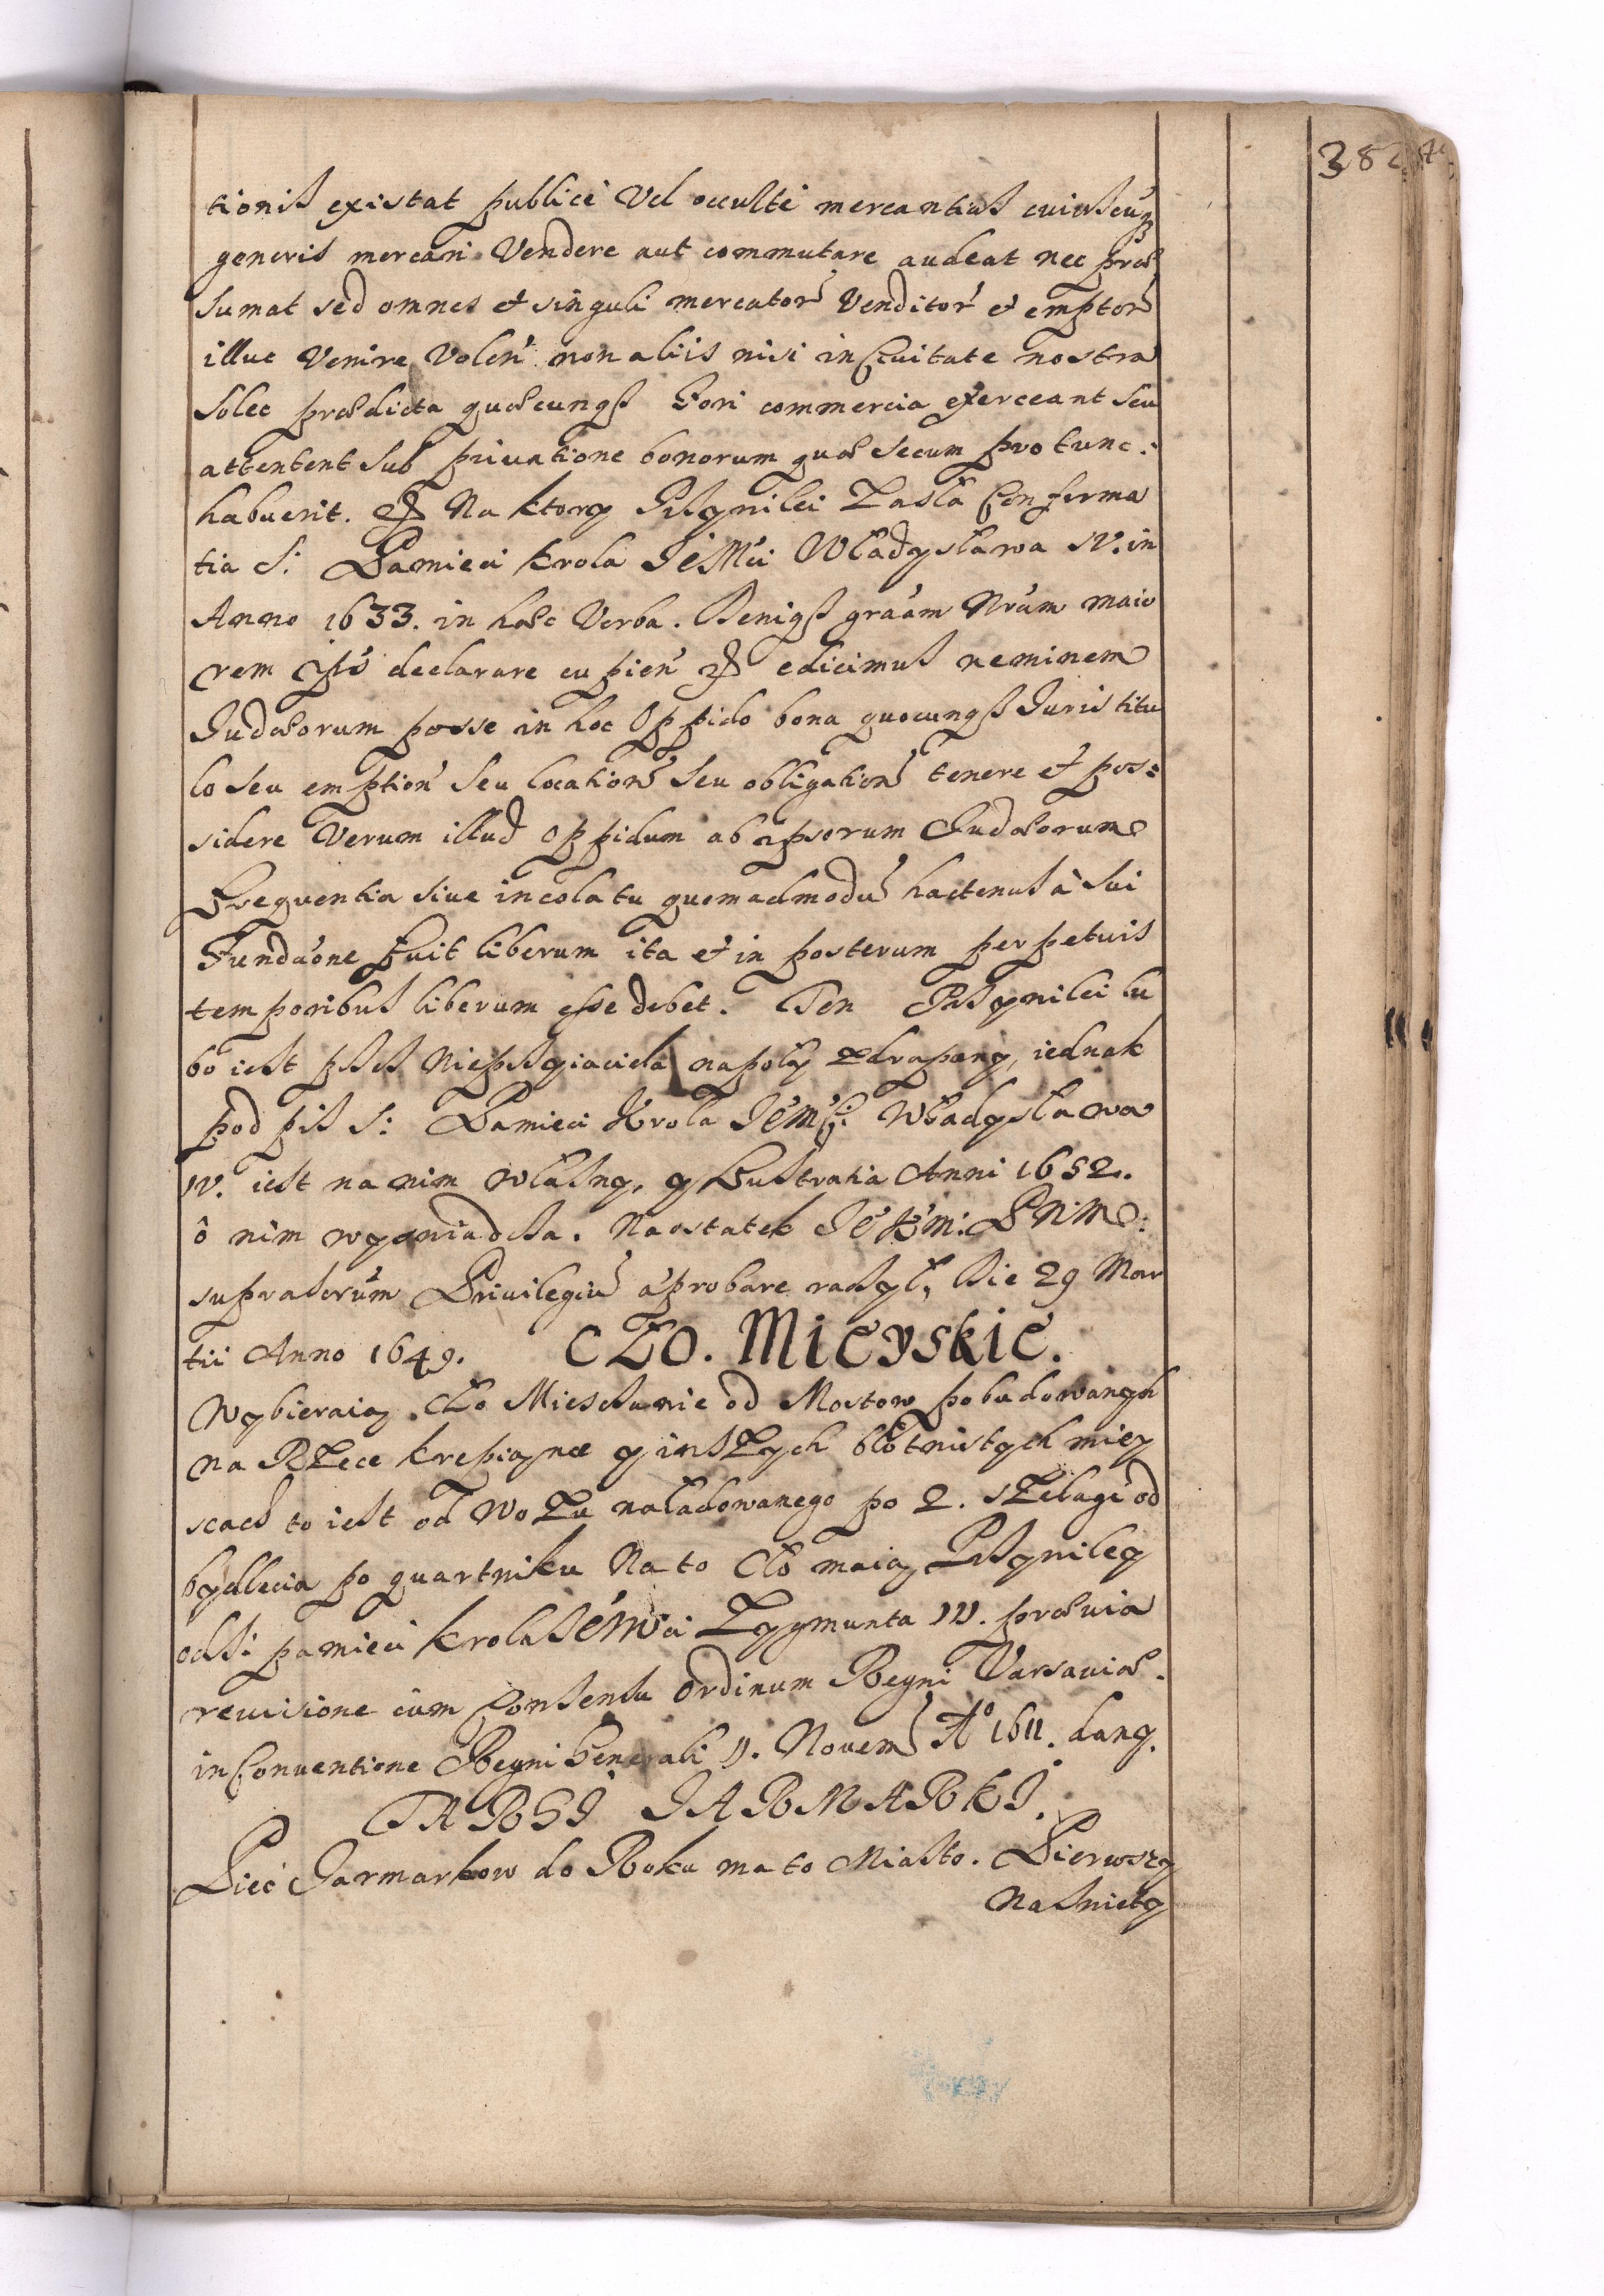 382
tionis existat publici Vel occulte mercantias cuiuscuq
generis mercari Vendere aut commutare audeat nec præ
sumat sed omnes et singuli mercator Venditor et emptor
illuc Venire Volen non aliis nisi in Ciuitate nostra
Solec prædicta quæcunq Fori commercia exerceant seu
attentent sub priuatione bonorum quæ secum pro tunc
habuerit. Na ktory Przywilei Zaszła Conferma
tia S. Pamieci Krola JeMci Władysława IV. in
Anno 1633. in hæc Verba. Benigq graam Nram maio
rem declarare cupien edicimus neminem
Judæorum posse in hoc Oppido bona quocunq Juris titu
lo seu emption seu location seu obligation tenere et pos:
sidere Verum illud Oppidum ab ipsorum Judæorum
Frequentia siue incolatu quemadmodu hactenus à sui
Fundaone Fuit liberum ita et in posterum perpetuis
temporibus liberum esse debet. Ten Przywilei lu
bo iest przez Nieprzyiaciela napoły zdrapany, iednak
pod pis S: Pamieci Krola JeMCi Władysława
IV. iest na nim własny, y Lustratia Anni 1652.
ô nim wyswiadcza. Naostatek JeKM: PNM:
supraterum Priuilegiu aprobare raczył, Die 29 Mar
tii Anno 1649. CŁO. MieYskie.
Wybieraią Cło Miesczanie od Mostow pobudowanych
na RZece krepiance y inszych błotnistych miey
scach to iest od WoZu naładowanego po 2. sZelągi od
bydlecia po quartniku Na to Cło maią Przywiley
od S: pamieci Krola JeMci Zygmunta III. præuia
reuisione cum Consensu Ordinum Regni Varsauiæ.
in Conuentione Regni Generali 11. Novem Aº 1611. dany.
TARGI JARMARKI.
Piec Jarmarkow do Roku ma to Miasto. Pierwszy
Na Swiety